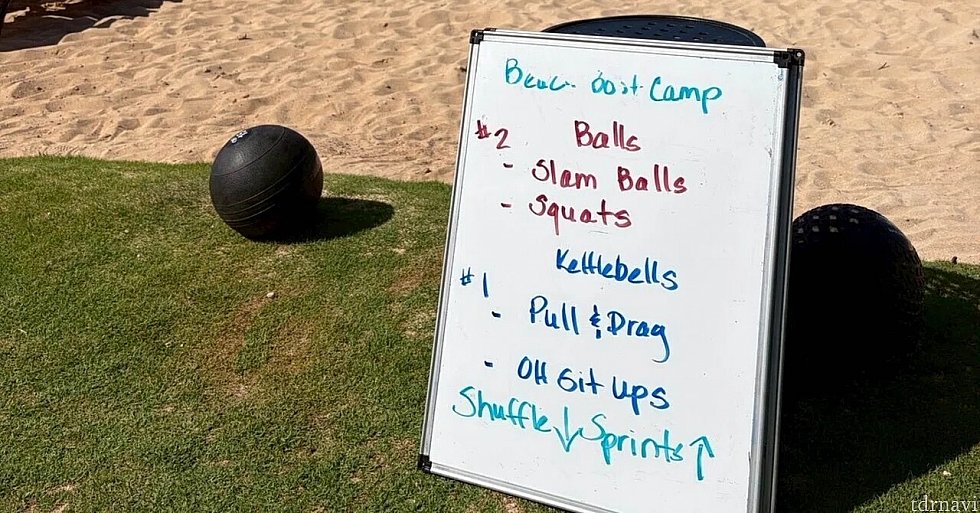 Beach Boot Camp
#2 Balls
- Slam Balls
- Squats
Kettlebells
#1
- Pull & Drag
- OH Sit Ups
Shuffle ↓ Sprints ↑
tdrnavi